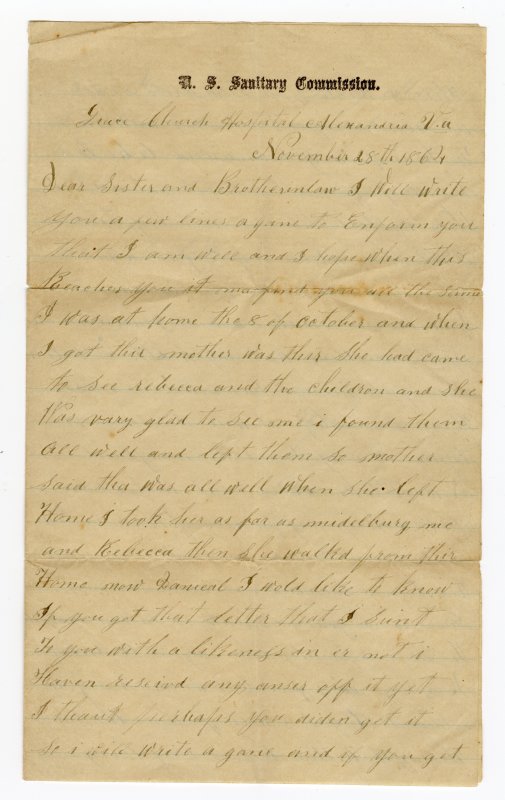 U. S. Sanitary Commission.
Grace Church Hospital Alexandria Va
November 28th 1864
Dear Sister and Brotherinlaw I Will write
you a few lines agane to Enform you
that I am well and I hope when this
Reaches you it ma find you all the same
I was at home the 8 of october and when
I got thir mother was thir She had came
to See rebecca and the children and she
Was vary glad to See me i found them
all well and left them so mother
said tha was all well when she left
Home I took her as far as midelburg me
and Rebecca then she walked from thir
Home now Danieal I wold like to know
If you got that letter that I Saint
To you with a likeness in er not i
Haven reseivd any anser off it yet
I thaut perhaps you diden get it
so i will write a gane and if you get